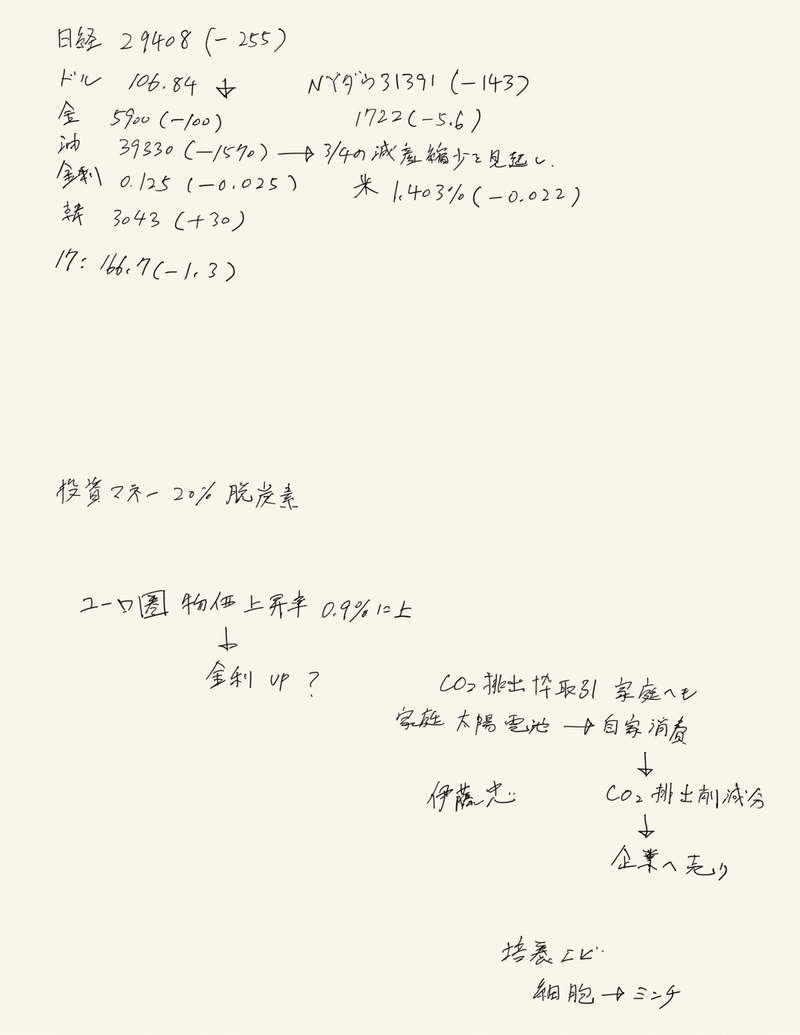 日経 29408 (-255)
ドル 106.84 ↓ NYダウ31391 (-143)
金 5900 (-100) 1722 (-5.6)
油 39330 (-1570) → 3/4の減産縮少を見越し.
金利 0.125 (-0.025) 米 1.403% (-0.022)
韓 3043 (+30)
17: 166.7 (-1.3)
投資マネー 20% 脱炭素
ユーロ圏 物価上昇率 0.9%に上
↓
金利 UP ?
CO2 排出枠取引 家庭へも
家庭 太陽電池 → 自家消費
↓
伊藤忠 CO2 排出削減分
↓
企業へ売り
培養エビ
細胞 → ミンチ